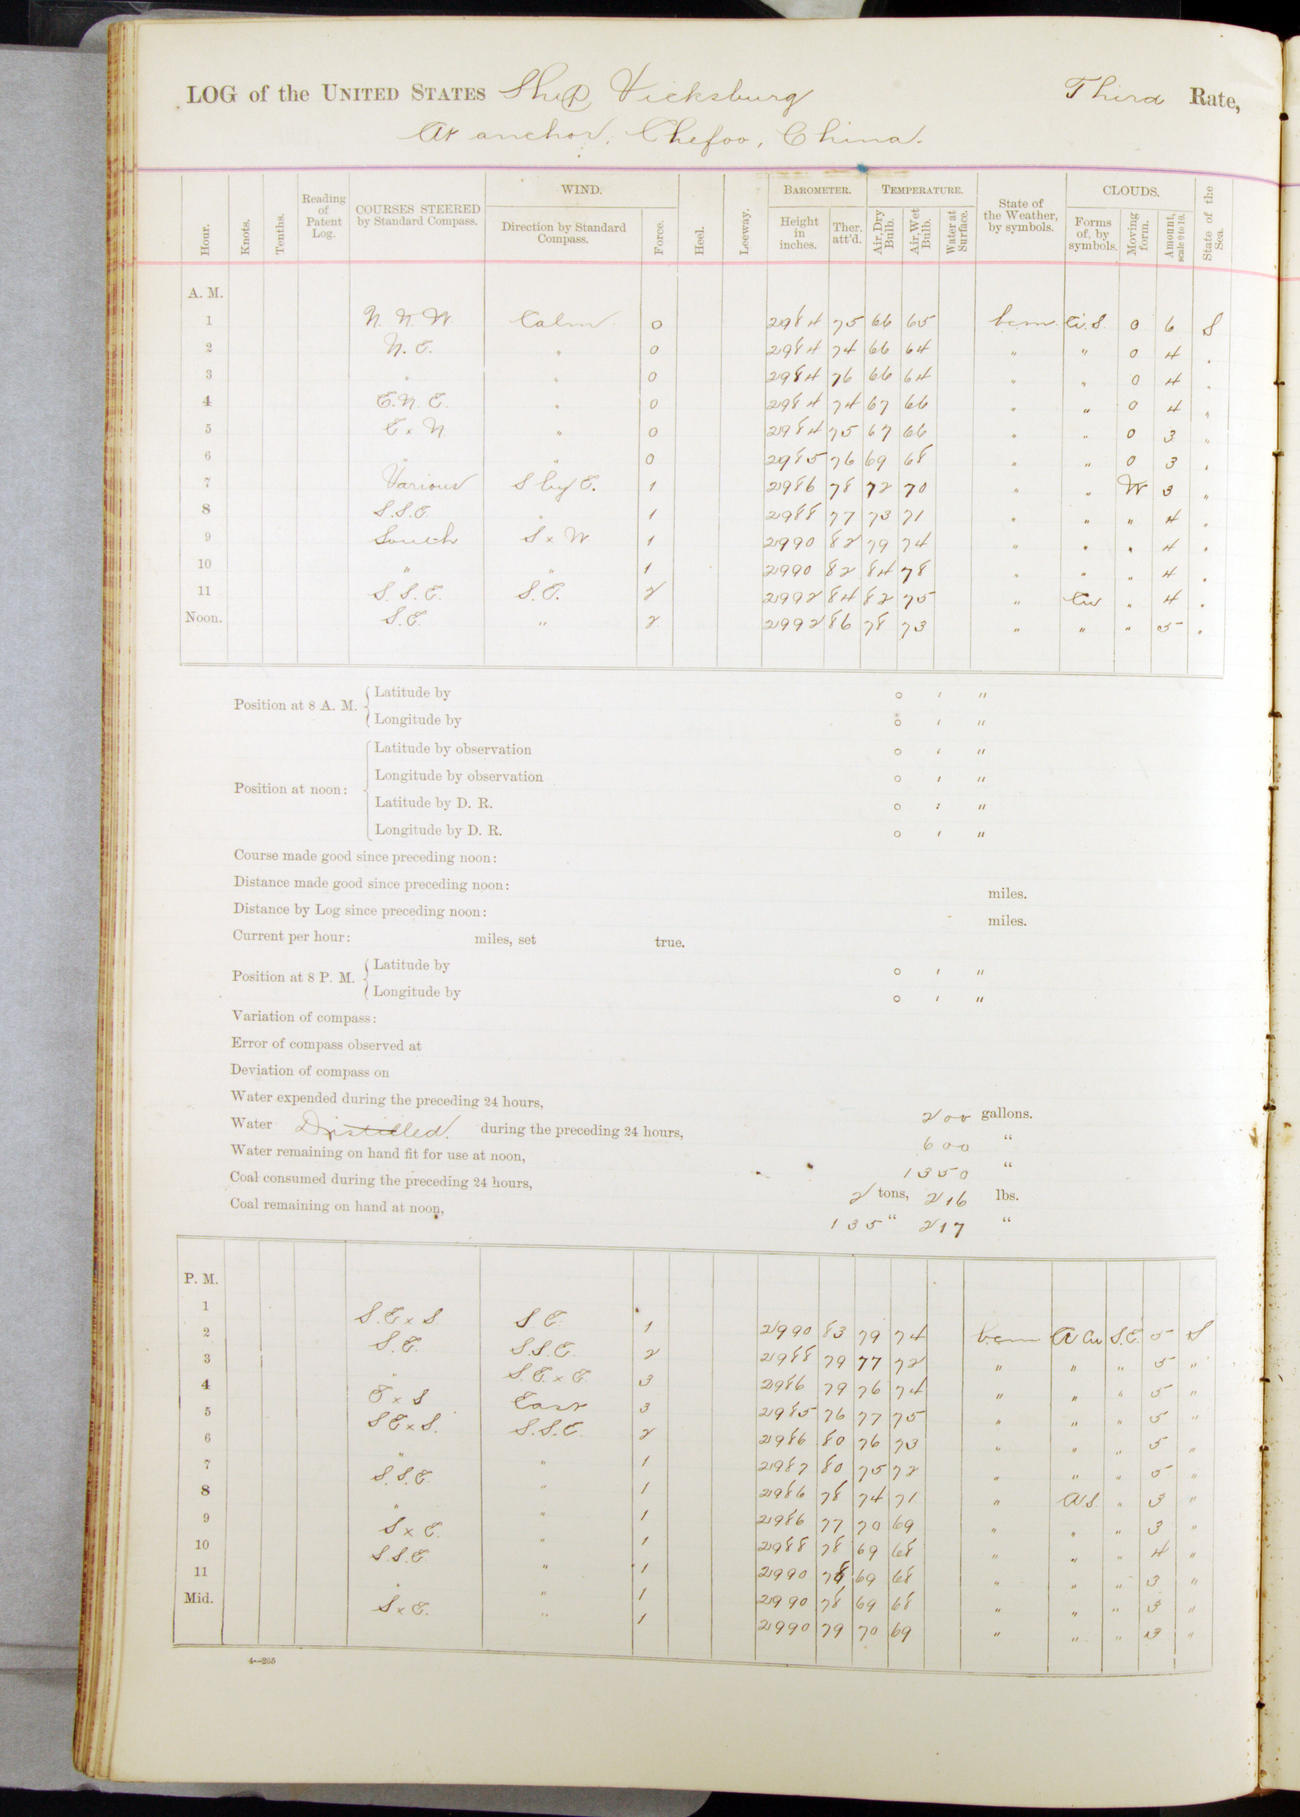 LOG of the UNITED STATES Ship Vicksburg Third Rate,
At anchor, Chefoo, China.
Hour. Knots. Tenths. Reading of Patent Log. COURSES STEERED by Standard Compass. WIND. Direction by Standard Compass. Force. Heel. Leeway. BAROMETER. Height in inches. Ther. att'd. TEMPERATURE. Air, Dry Bulb. Air, Wet Bulb. Water at Surface. State of the Weather, by symbols. CLOUDS. Forms of, by symbols. Moving form. Amount, scale 0 to 10. State of the Sea.
A. M.
1 N. N. W. Calm 0 2984 75 66 65 bcm Ci. S. 0 6 S
2 N. E. " 0 2984 74 66 64 " " 0 4 "
3 " " 0 2984 76 66 64 " " 0 4 "
4 E. N. E. " 0 2984 74 67 66 " " 0 4 "
5 E x N " 0 2984 75 67 66 " " 0 3 "
6 " " 0 2985 76 69 68 " " 0 3 "
7 Various S by E. 1 2986 78 72 70 " " W 3 "
8 S. S. E. " 1 2988 77 73 71 " " " 4 "
9 South S x W 1 2990 82 79 74 " " " 4 "
10 " " 1 2990 82 84 78 " " " 4 "
11 S. S. E. S. E. 2 2992 84 82 75 " Cu " 4 "
Noon. S. E. " 2 2992 86 78 73 " " " 5 "
Position at 8 A. M. Latitude by ° ′ ″
Longitude by ° ′ ″
Position at noon: Latitude by observation ° ′ ″
Longitude by observation ° ′ ″
Latitude by D. R. ° ′ ″
Longitude by D. R. ° ′ ″
Course made good since preceding noon:
Distance made good since preceding noon: miles.
Distance by Log since preceding noon: miles.
Current per hour: miles, set true.
Position at 8 P. M. Latitude by ° ′ ″
Longitude by ° ′ ″
Variation of compass:
Error of compass observed at
Deviation of compass on
Water expended during the preceding 24 hours, 200 gallons.
Water Distilled. during the preceding 24 hours, 600 "
Water remaining on hand fit for use at noon, 1350 "
Coal consumed during the preceding 24 hours, 2 tons, 216 lbs.
Coal remaining on hand at noon, 135 " 217 "
P. M.
1 S. E x S. S E. 1 2990 83 79 74 bcm A Cu S. E. 5 S
2 S. E. S. S. E. 2 2988 79 77 72 " " " 5 "
3 " S. E. x E. 3 2986 79 76 74 " " " 5 "
4 E x S East 3 2985 76 77 75 " " " 5 "
5 S E x S. S. S. E. 2 2986 80 76 73 " " " 5 "
6 " " 1 2987 80 75 72 " " " 5 "
7 S. S. E. " 1 2986 78 74 71 " A S. " 3 "
8 " " 1 2986 77 70 69 " " " 3 "
9 S x E. " 1 2988 78 69 68 " " " 4 "
10 S. S. E. " 1 2990 78 69 68 " " " 3 "
11 " " 1 2990 78 69 68 " " " 3 "
Mid. S x E. " 1 2990 79 70 69 " " " 3 "
4—265